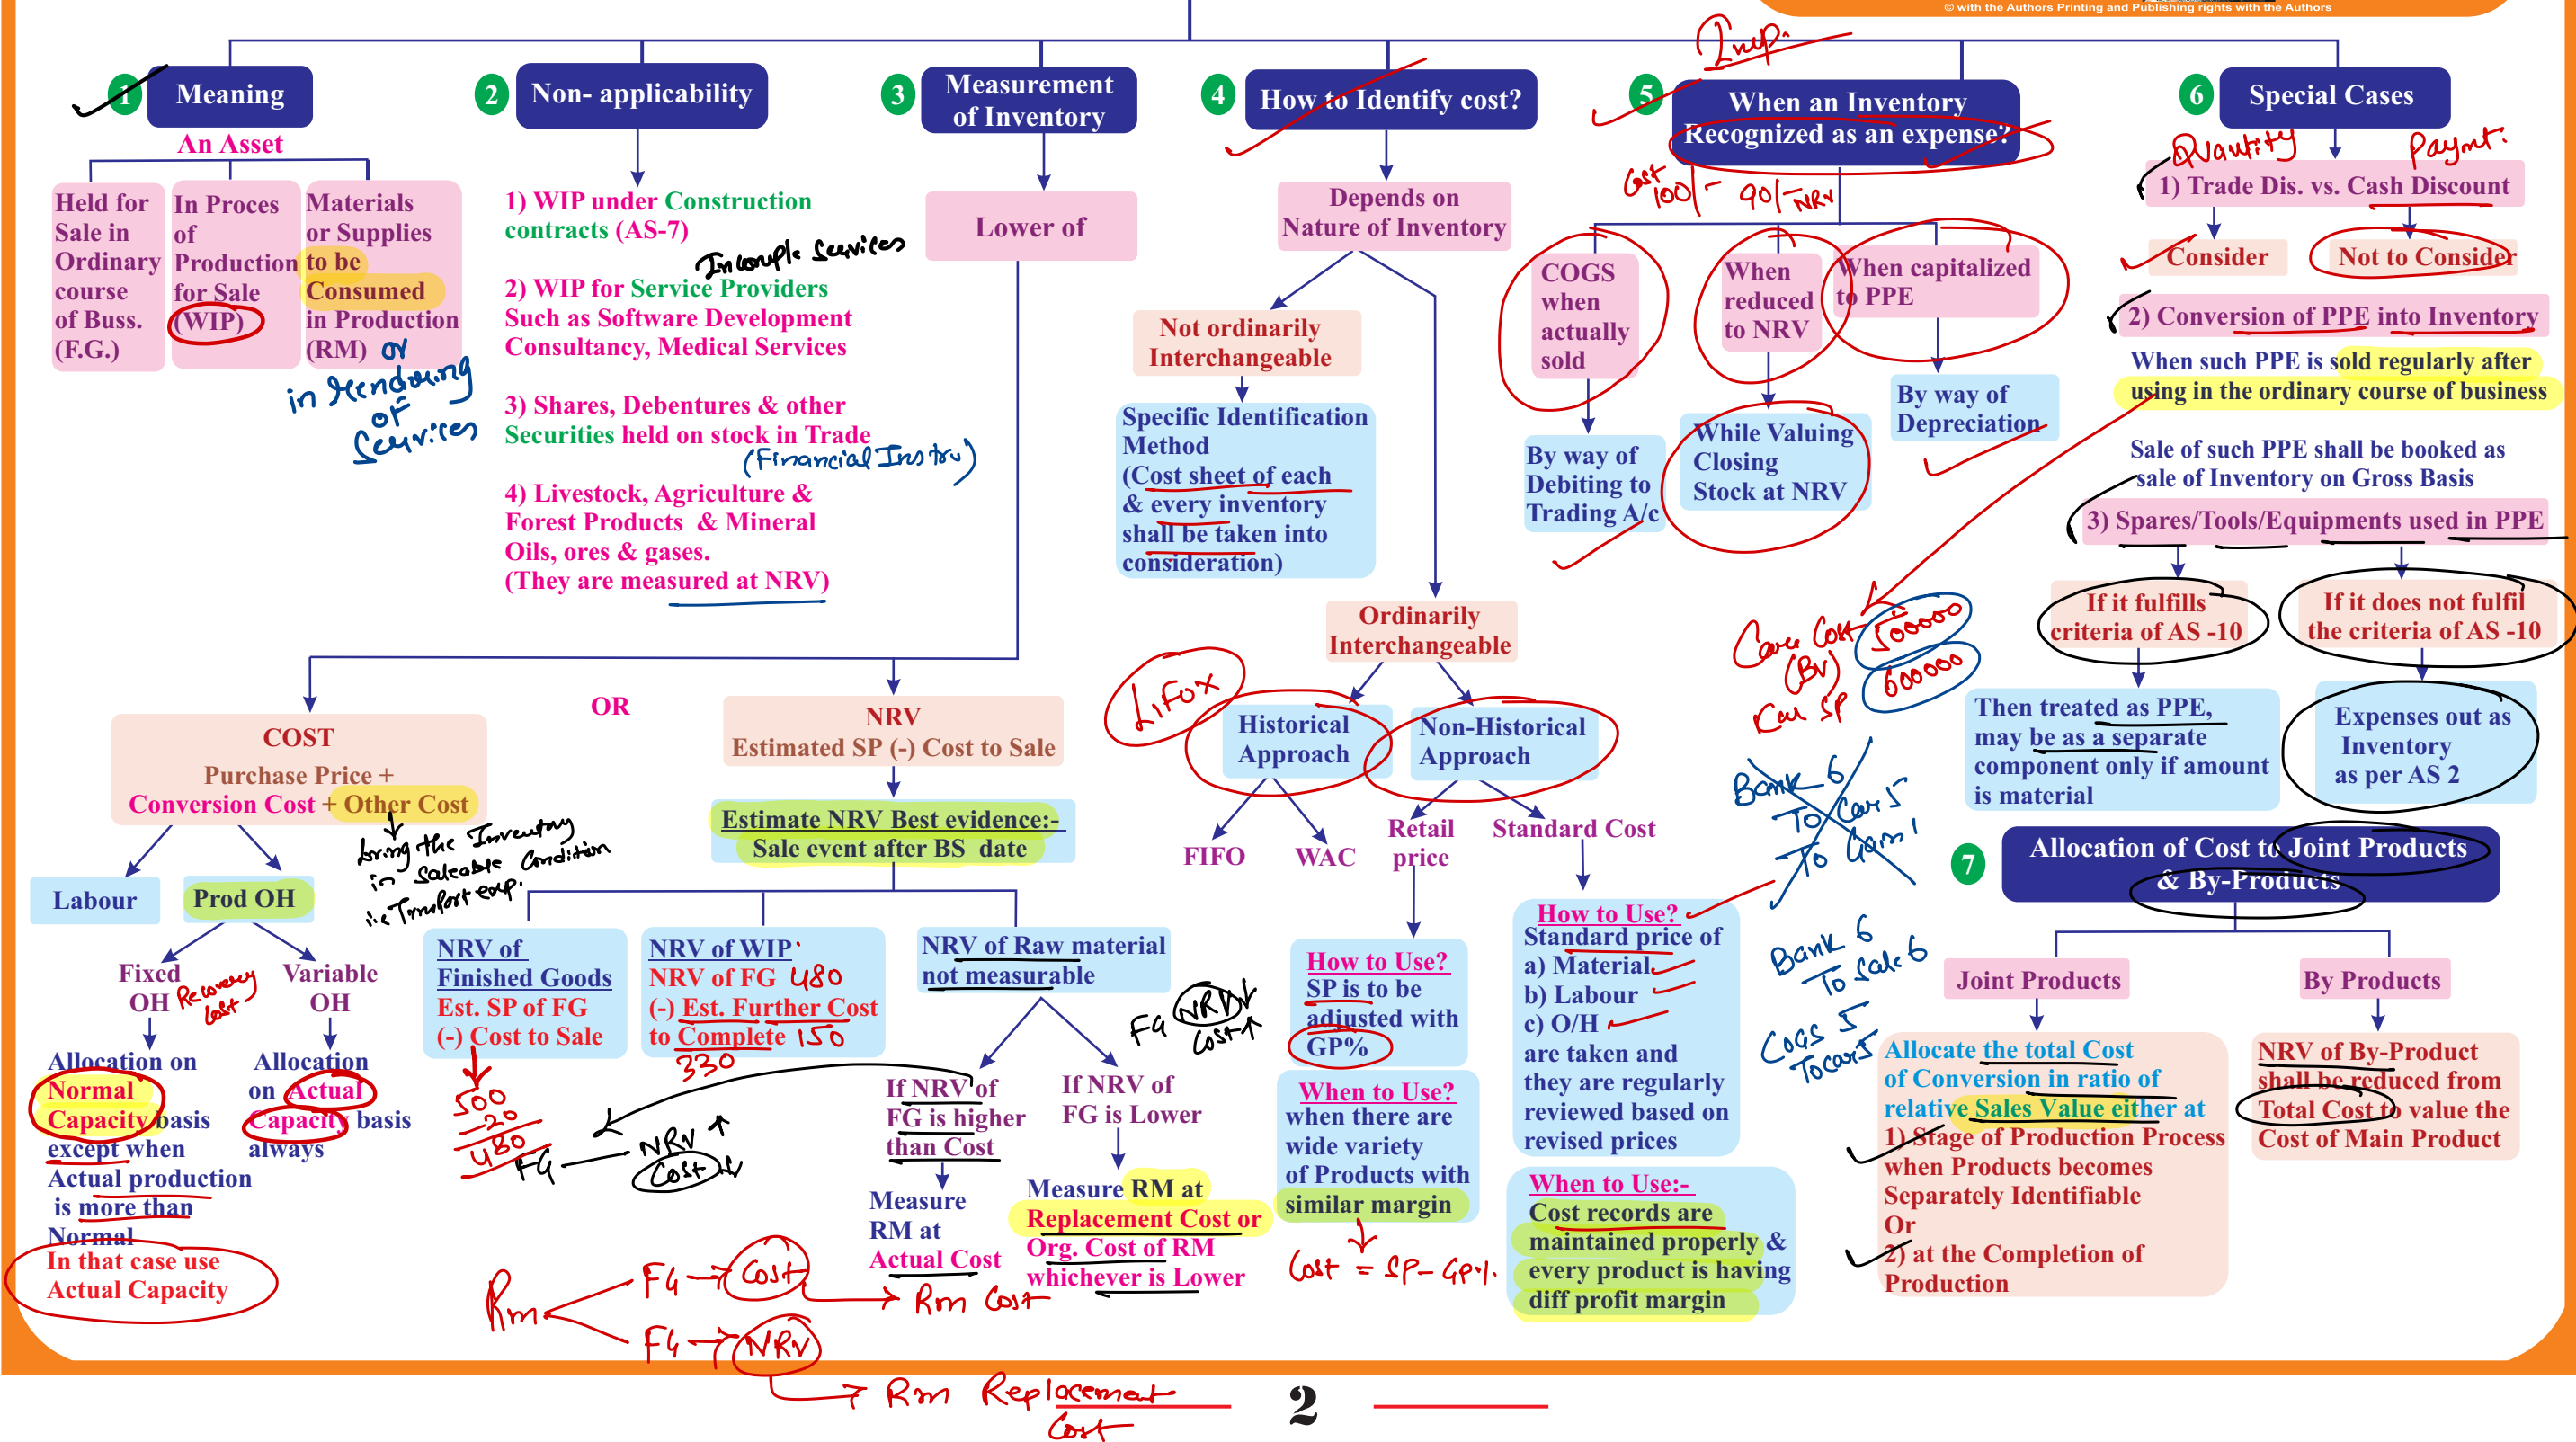 © with the Authors Printing and Publishing rights with the Authors
Imp.
1 Meaning
An Asset
Held for
Sale in
Ordinary
course
of Buss.
(F.G.)
In Proces
of
Production
for Sale
(WIP)
Materials
or Supplies
to be
Consumed
in Production
(RM) or
in rendering
of
Services
2 Non- applicability
1) WIP under Construction
contracts (AS-7)
Services
2) WIP for Service Providers
Such as Software Development
Consultancy, Medical Services
3) Shares, Debentures & other
Securities held on stock in Trade
(Financial Instru)
4) Livestock, Agriculture &
Forest Products & Mineral
Oils, ores & gases.
(They are measured at NRV)
3 Measurement
of Inventory
Lower of
COST
Purchase Price +
Conversion Cost + Other Cost
bring the Inventory
in Saleable Condition
i.e Transport exp.
Labour
Prod OH
Fixed
OH
Recovery
Cost
Allocation on
Normal
Capacity basis
except when
Actual production
is more than
Normal
In that case use
Actual Capacity
Variable
OH
Allocation
on Actual
Capacity basis
always
OR
NRV
Estimated SP (-) Cost to Sale
Estimate NRV Best evidence:-
Sale event after BS date
NRV of
Finished Goods
Est. SP of FG
(-) Cost to Sale
500
-20
480
NRV of WIP
NRV of FG 480
(-) Est. Further Cost
to Complete 150
330
NRV of Raw material
not measurable
FG NRV↓
Cost↑
If NRV of
FG is higher
than Cost
Measure
RM at
Actual Cost
If NRV of
FG is Lower
Measure RM at
Replacement Cost or
Org. Cost of RM
whichever is Lower
FG NRV ↑
Cost ↓
Rm
FG → Cost → Rm Cost
FG → NRV
→ Rm Replacement
Cost
4 How to Identify cost?
Depends on
Nature of Inventory
Not ordinarily
Interchangeable
Specific Identification
Method
(Cost sheet of each
& every inventory
shall be taken into
consideration)
Ordinarily
Interchangeable
LIFO x
Historical
Approach
FIFO
WAC
Non-Historical
Approach
Retail
price
How to Use?
SP is to be
adjusted with
GP%
When to Use?
when there are
wide variety
of Products with
similar margin
Cost = SP - GP%.
Standard Cost
How to Use?
Standard price of
a) Material
b) Labour
c) O/H
are taken and
they are regularly
reviewed based on
revised prices
When to Use:-
Cost records are
maintained properly &
every product is having
diff profit margin
5 When an Inventory
Recognized as an expense?
Cost
100/- 90/- NRV
COGS
when
actually
sold
By way of
Debiting to
Trading A/c
When
reduced
to NRV
While Valuing
Closing
Stock at NRV
When capitalized
to PPE
By way of
Depreciation
6 Special Cases
Quantity
Paymt.
1) Trade Dis. vs. Cash Discount
Consider
Not to Consider
2) Conversion of PPE into Inventory
When such PPE is sold regularly after
using in the ordinary course of business
Sale of such PPE shall be booked as
sale of Inventory on Gross Basis
Cost 500000
(BV)
Car SP 600000
Bank 6
To Car 5
To Gain 1
Bank 6
To Sale 6
COGS 5
To car 5
3) Spares/Tools/Equipments used in PPE
If it fulfills
criteria of AS -10
Then treated as PPE,
may be as a separate
component only if amount
is material
If it does not fulfil
the criteria of AS -10
Expenses out as
Inventory
as per AS 2
7 Allocation of Cost to Joint Products
& By-Products
Joint Products
Allocate the total Cost
of Conversion in ratio of
relative Sales Value either at
1) Stage of Production Process
when Products becomes
Separately Identifiable
Or
2) at the Completion of
Production
By Products
NRV of By-Product
shall be reduced from
Total Cost to value the
Cost of Main Product
2